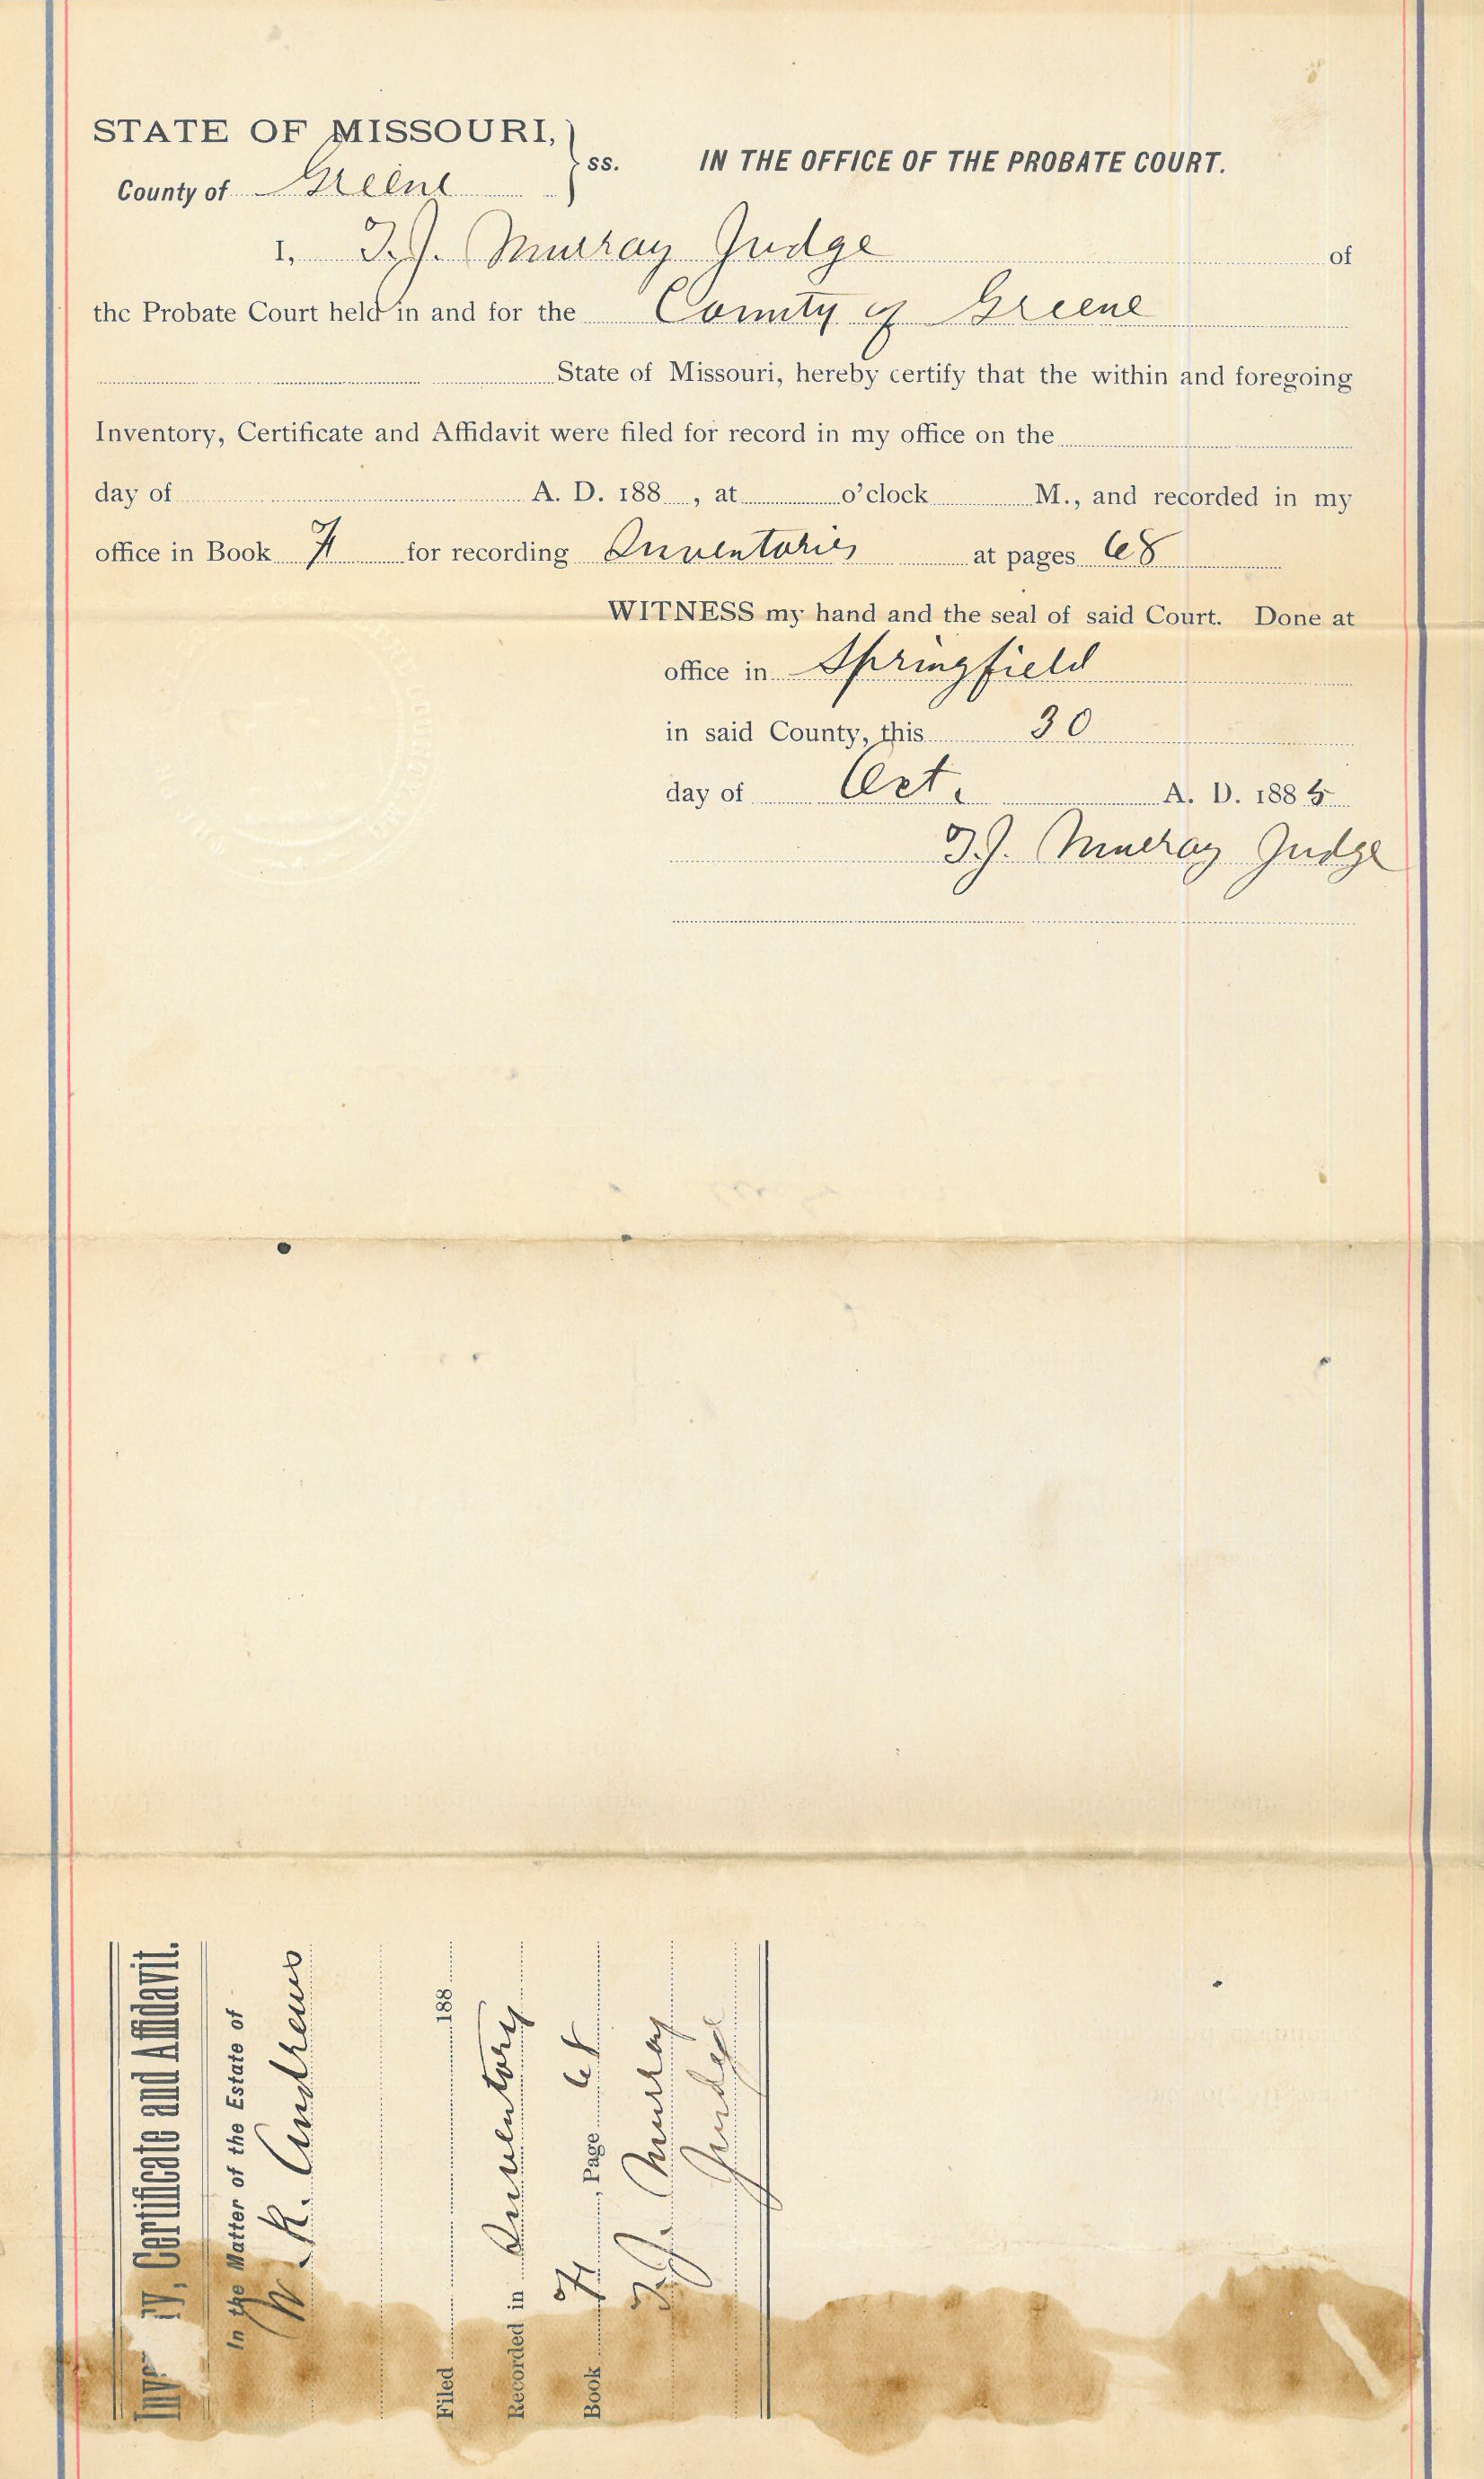 STATE OF MISSOURI,
County of Greene
ss.
IN THE OFFICE OF THE PROBATE COURT.
I, T.J. Murray Judge of
the Probate Court held in and for the County of Greene
State of Missouri, hereby certify that the within and foregoing
Inventory, Certificate and Affidavit were filed for record in my office on the
day of A. D. 188 , at o'clock M., and recorded in my
office in Book for recording Inventories at pages 68
WITNESS my hand and the seal of said Court. Done at
office in Springfield
in said County, this 30
day of Oct. A. D. 1885
T.J. Murray Judge
Inve ry, Certificate and Affidavit.
In the Matter of the Estate of
W. R. Andrews
Filed 188
Recorded in Inventory
Book , Page 68
T.J. Murray
Judge